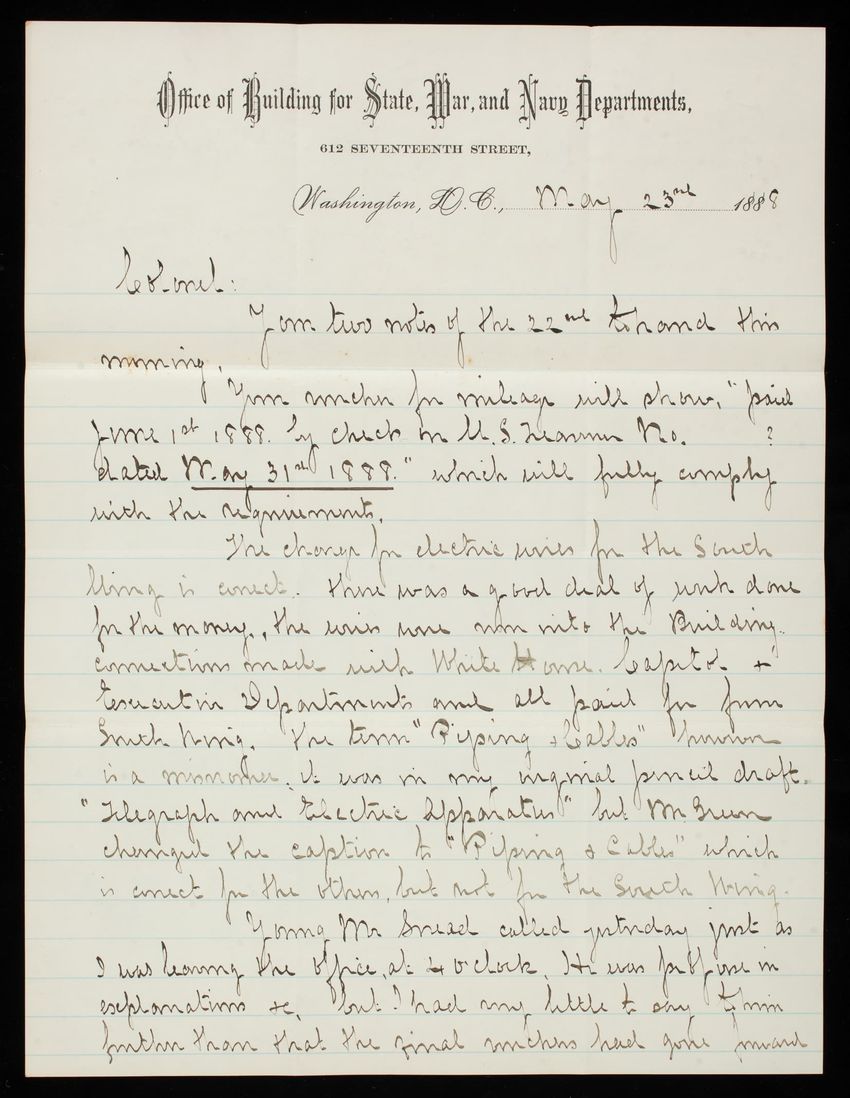 Office of Building for State, War, and Navy Departments,
612 SEVENTEENTH STREET,
Washington, D.C., May 23rd 1888
Colonel:
Your two notes of the 22nd to hand this
morning.
Your voucher for mileage will show, "paid
June 1st 1888. by check on U.S. Treasurer No. ?
dated May 31st 1888." which will fully comply
with the requirements.
The charge for electric wires for the South
Wing is correct. There was a good deal of work done
for the money, the wires were run into the Building.
connections made with White House. Capitol +
Executive Departments and all paid for from
South Wing. The term "Piping & Cables" however
is a misnomer, it was in my original pencil draft.
"Telegraph and Electric Apparatus" but Mr Green
changed the caption to "Piping & Cables" which
is correct for the others, but not for the South Wing.
Young Mr Snead called yesterday just as
I was leaving the office, at 4 o'clock. He was profuse in
explanations &c, but I had very little to say to him
further than that the final vouchers had gone forward